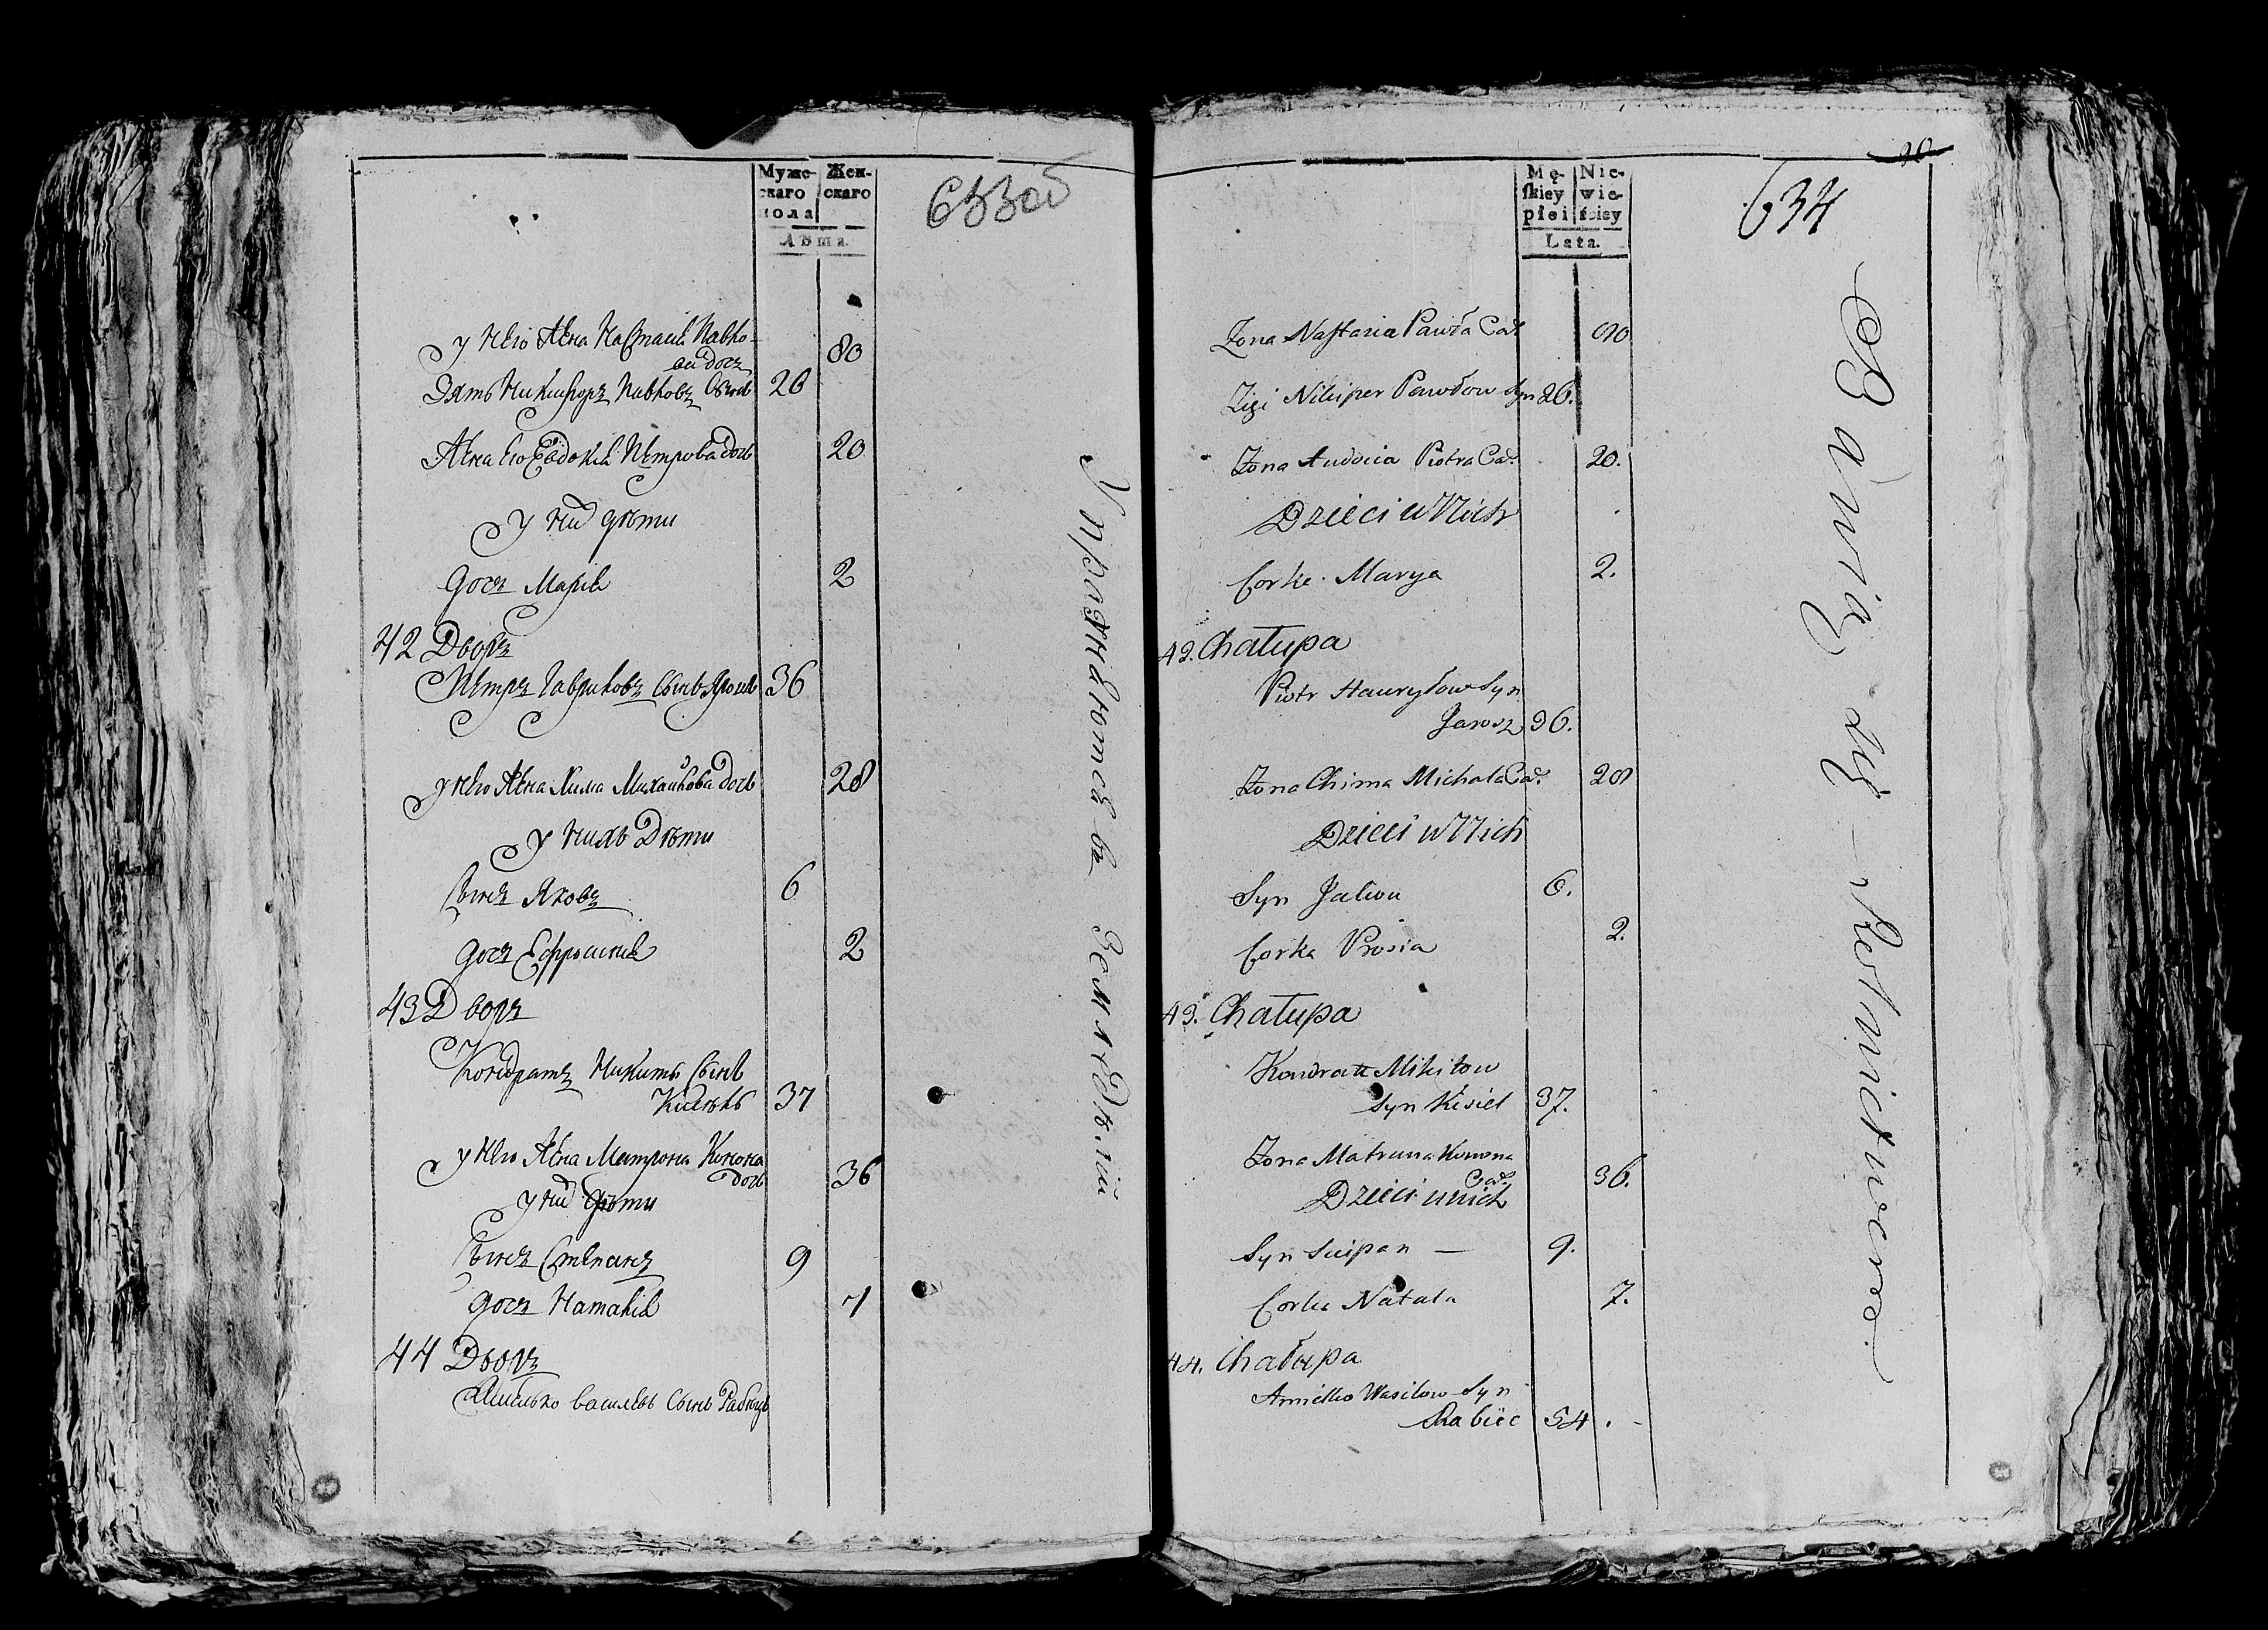 Муже-
скаго
пола
Жен-
скаго
Лѣта.
633 об
у него жена Настасiя Павло-
ва дочь 80
Зять Никифоръ Павловъ сынъ 26
Жена его Евдокiя Петрова дочь 20
у них дѣти
дочь Марiя 2
42 Дворъ
Петръ Гавриловъ сынъ Ярошъ 36
у него жена Хима Михайлова дочь 28
у нихъ Дѣти
сынъ Яковъ 6
дочь Ефросинiя 2
43 Дворъ
Кондратъ Никиты сынъ
Кисель 37
у него жена Матрона Конона
дочь 36
у них дѣти
сынъ Степанъ 9
дочь Наталiя 7
44 Дворъ
Амелько васильевъ сынъ Рабецъ
Упражняются в Земледѣлiи
Mę-
skiey
płci
Nie-
wie-
ściey
Lata.
20
634
Żona Nastazia Pawła Cor. 80
Zięć Nikiper Pawłow Syn 26.
Żona Audocia Piotra Cor. 20.
Dzieci u Nich
Corka Marya 2.
42. Chałupa
Piotr Hauryłow Syn
Jarosz 36.
Żona Chima Michała Cor. 28
Dzieci u Nich
Syn Jakow 6.
Corka Prosia 2.
43. Chałupa
Kondrat Mikitow
Syn Kisiel 37.
Żona Matruna Konona
Cor. 36.
Dzieci u nich
Syn Sciepan — 9.
Corka Natala 7.
44. Chałupa
Amielko Wasilow Syn
Rabiec 54.
Bawią się Rolnictwem.